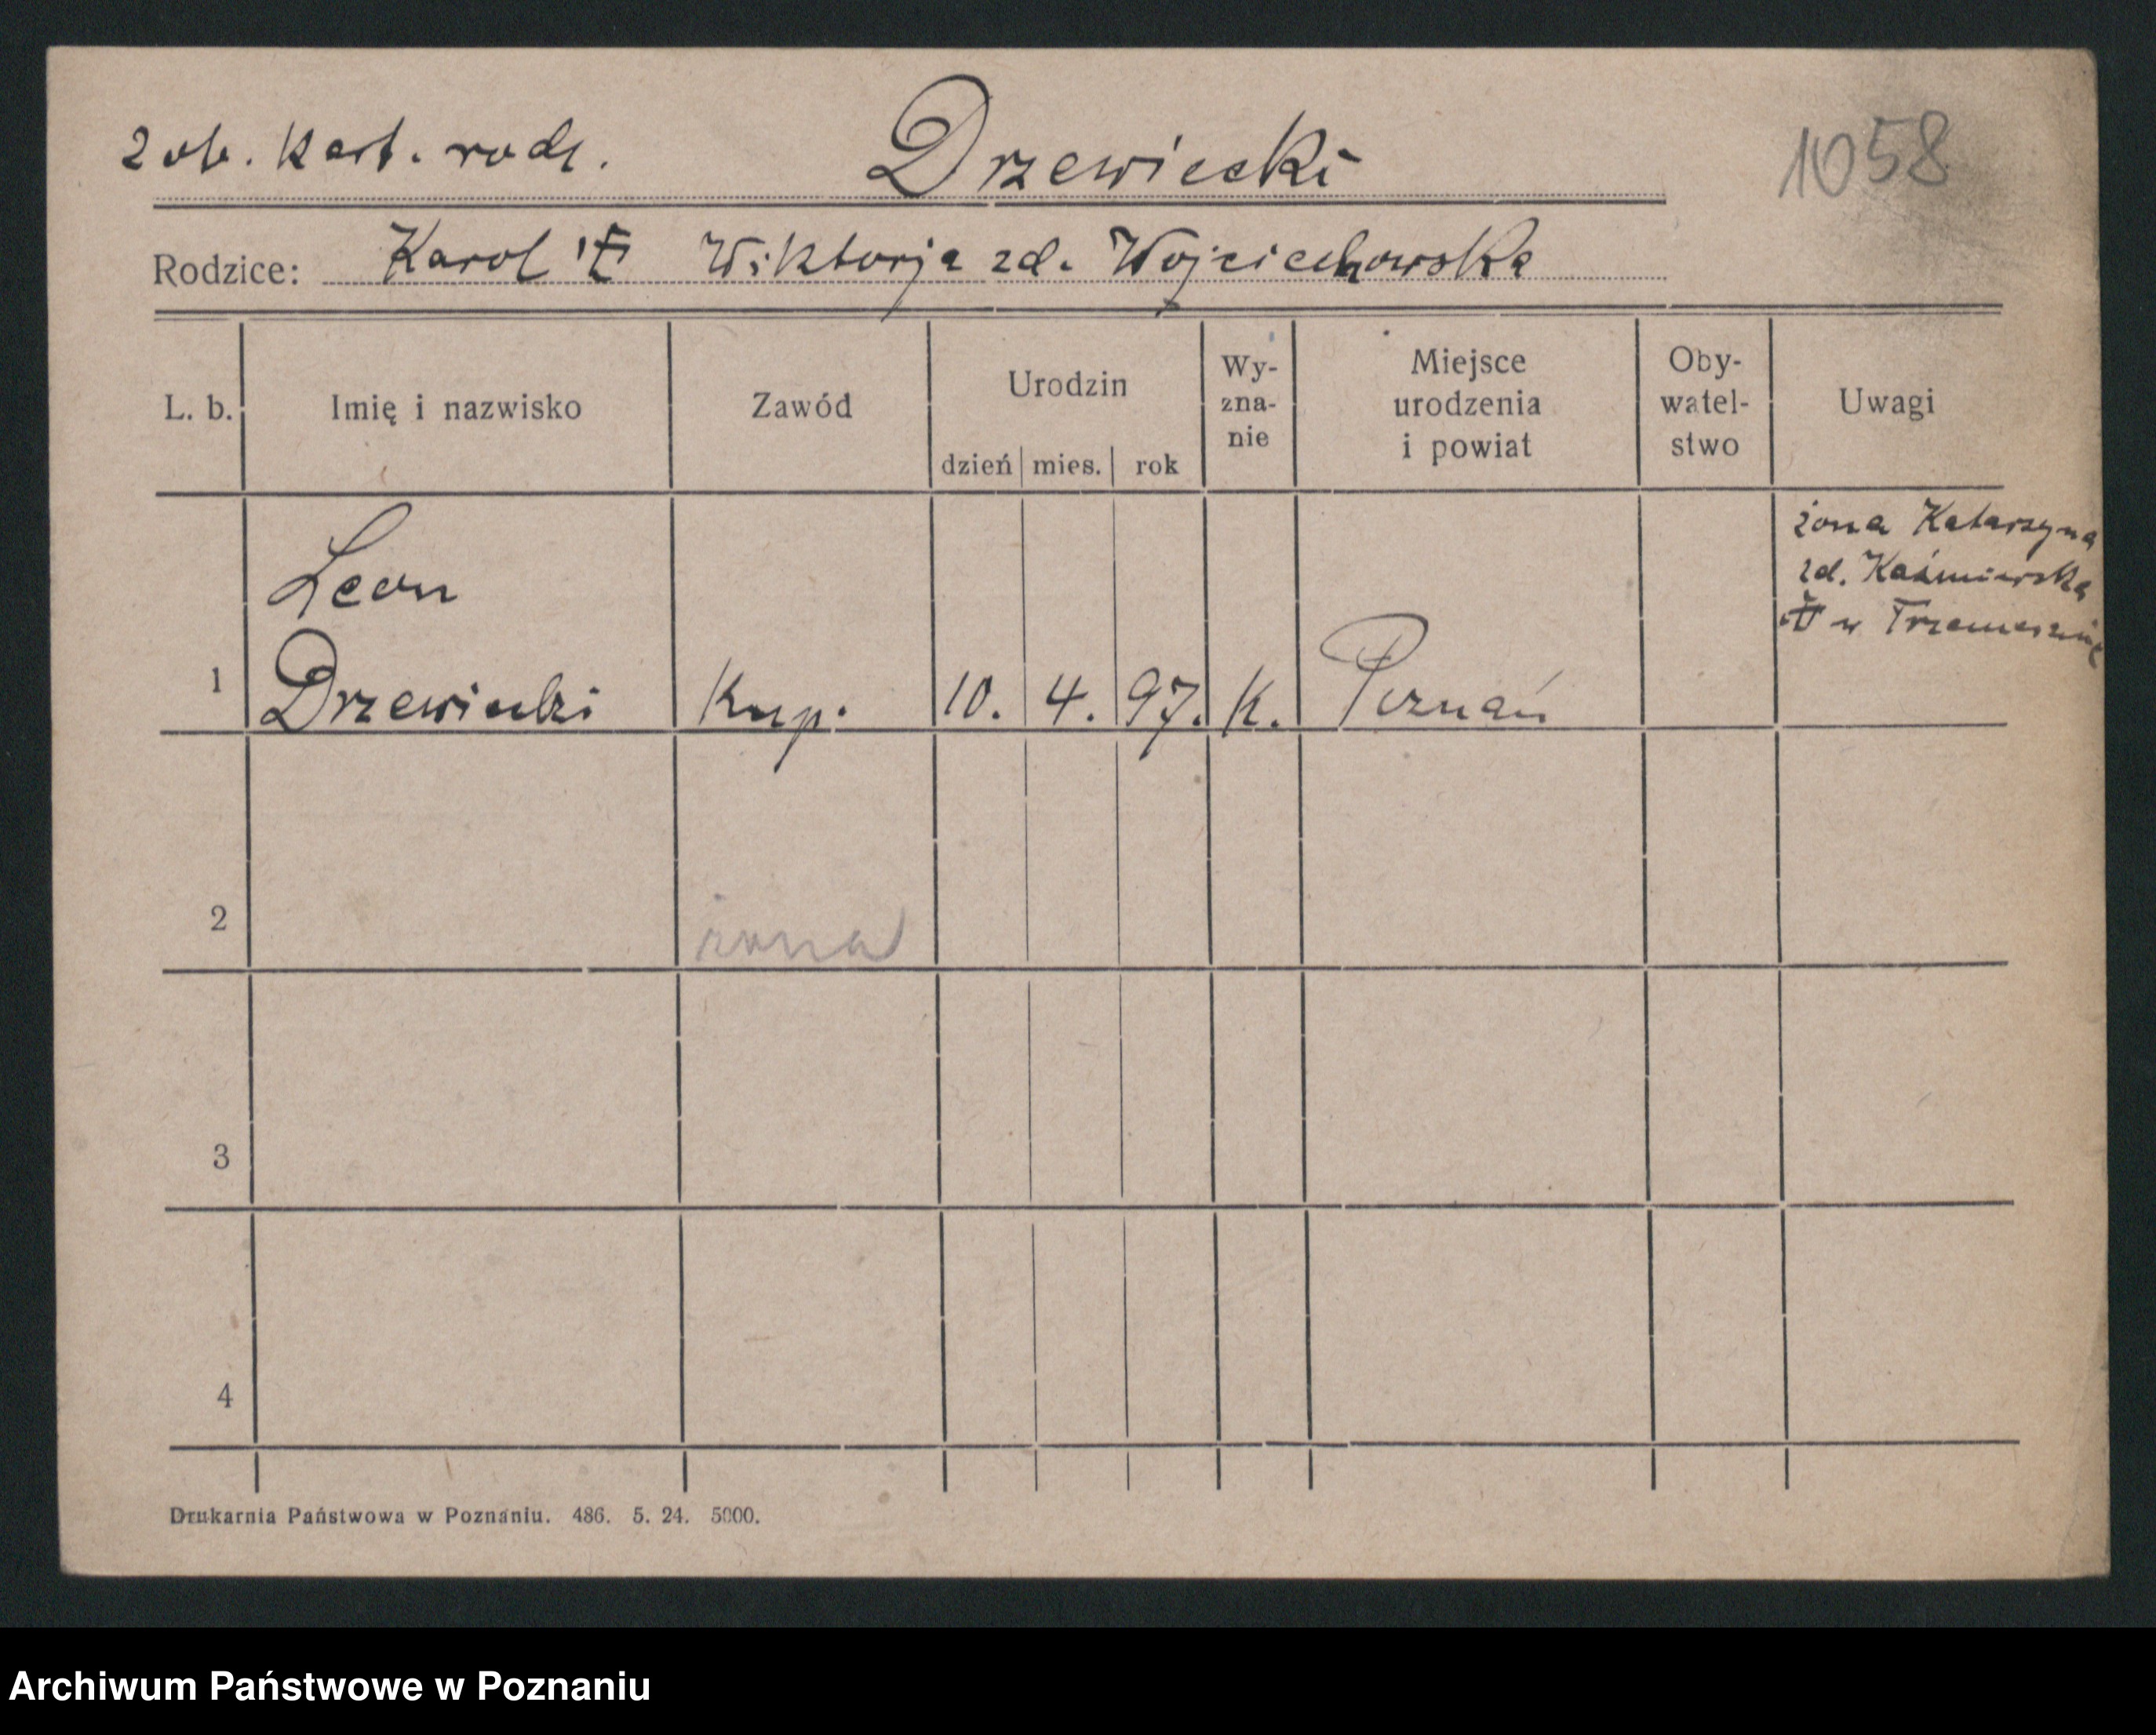 Zob. Kart. rodz.
Drzewiecki
1058
Rodzice: Karol Wiktorja zd. Wojciechowska
L. b. Imię i nazwisko Zawód Urodzin Wy-zna-nie Miejsce urodzenia i powiat Oby-watel-stwo Uwagi
dzień mies. rok
żona Katarzyna
zd. Kaźmierska
w Trzemesznie
Leon
1 Drzewiecki Kup. 10. 4. 97. K. Poznań
2 żona
3
4
Drukarnia Państwowa w Poznaniu. 486. 5. 24. 5000.
Archiwum Państwowe w Poznaniu